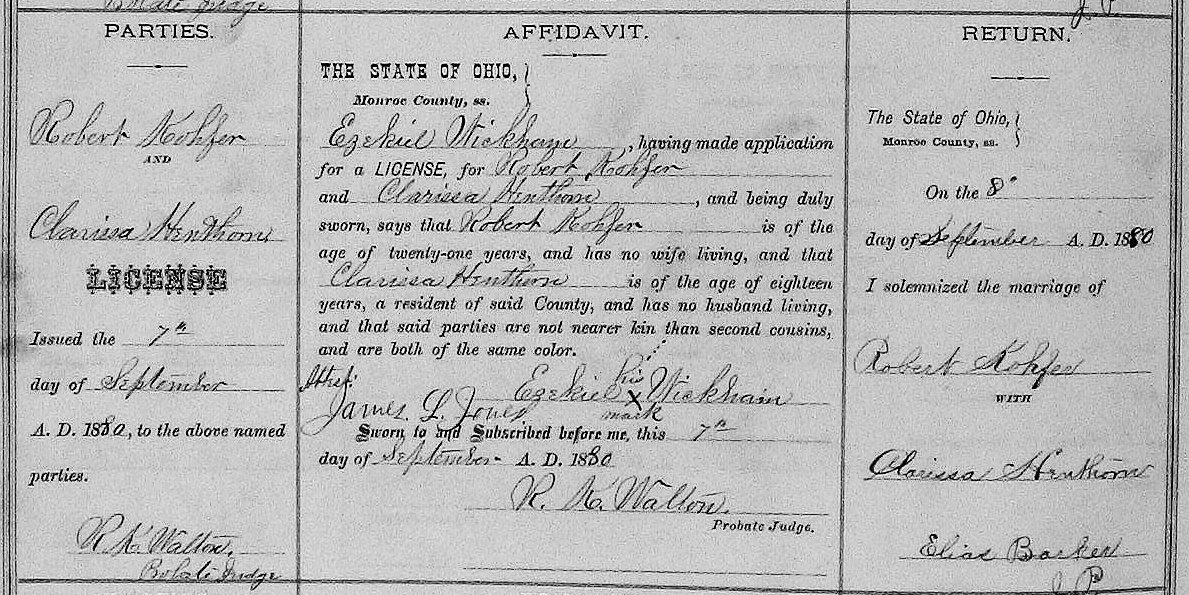 Probate Judge
J. P.
PARTIES.
Robert Kohfer
AND
Clarissa Henthorn
LICENSE
Issued the 7th
day of September
A. D. 1880, to the above named
parties.
R. K. Walton.
Probate Judge
AFFIDAVIT.
THE STATE OF OHIO,
Monroe County, ss.
Ezekiel Wickham, having made application
for a LICENSE, for Robert Kohfer
and Clarissa Henthorn, and being duly
sworn, says that Robert Kohfer is of the
age of twenty-one years, and has no wife living, and that
Clarissa Henthorn is of the age of eighteen
years, a resident of said County, and has no husband living,
and that said parties are not nearer kin than second cousins,
and are both of the same color.
his
Attest: Ezekiel X Wickham
James L. Jones mark
Sworn to and Subscribed before me, this 7th
day of September A. D. 1880
R. K. Walton.
Probate Judge.
RETURN.
The State of Ohio,
Monroe County, ss.
On the 8"
day of September A. D. 1880
I solemnized the marriage of
Robert Kohfer
WITH
Clarissa Henthorn
Elias Barker
J. P.